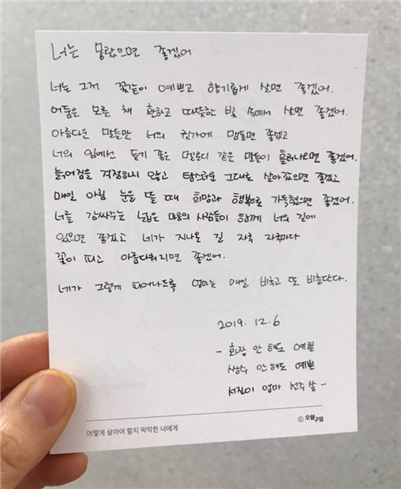 너는 몰랐으면 좋겠어
너는 그저 꽃같이 예쁘고 향기롭게 살면 좋겠어.
어둠은 모른 채 환하고 따뜻한 빛 속에서 살면 좋겠어.
아름다운 말들만 너의 귓가에 맴돌면 좋겠고
너의 입에선 듣기 좋은 멜로디 같은 말들이 흘러나오면 좋겠어.
늙어감을 걱정하지 않고 탐스러운 그대로 살아갔으면 좋겠고
매일 아침 눈을 뜰 때 희망과 행복으로 가득했으면 좋겠어.
너를 감싸주는 넓은 마음의 사람들이 함께 너의 길에
있으면 좋겠고 네가 지나온 길 자국 자국마다
꽃이 피고 아름다워지면 좋겠어.
네가 그렇게 피어나도록 엄마는 매일 빌고 또 빌한단다.
2019. 12. 6
- 화장 안 해도 예쁜
생수 안 해도 예쁜
서진이 엄마 선수 쌀 -
어떻게 살아야 할지 막막한 너에게
© 오월구일